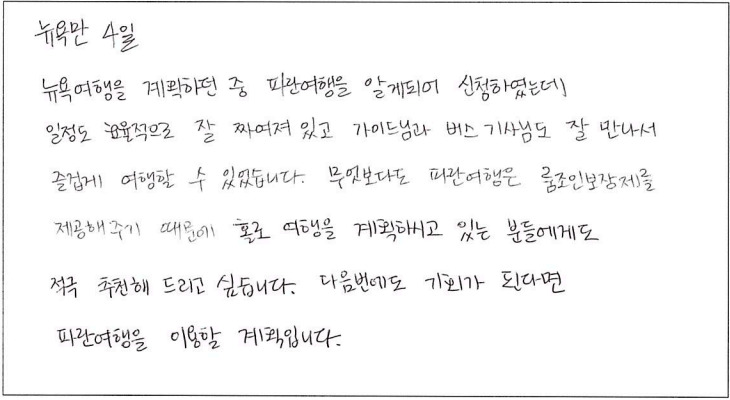 뉴욕만 4일
뉴욕여행을 계획하던 중 파란여행을 알게되어 신청하였는데,
일정도 효율적으로 잘 짜여져 있고 가이드님과 버스 기사님도 잘 만나서
즐겁게 여행할 수 있었습니다. 무엇보다도 파란여행은 룸조인보장제를
제공해주기 때문에 홀로 여행을 계획하시고 있는 분들에게도
적극 추천해 드리고 싶습니다. 다음번에도 기회가 된다면
파란여행을 이용할 계획입니다.